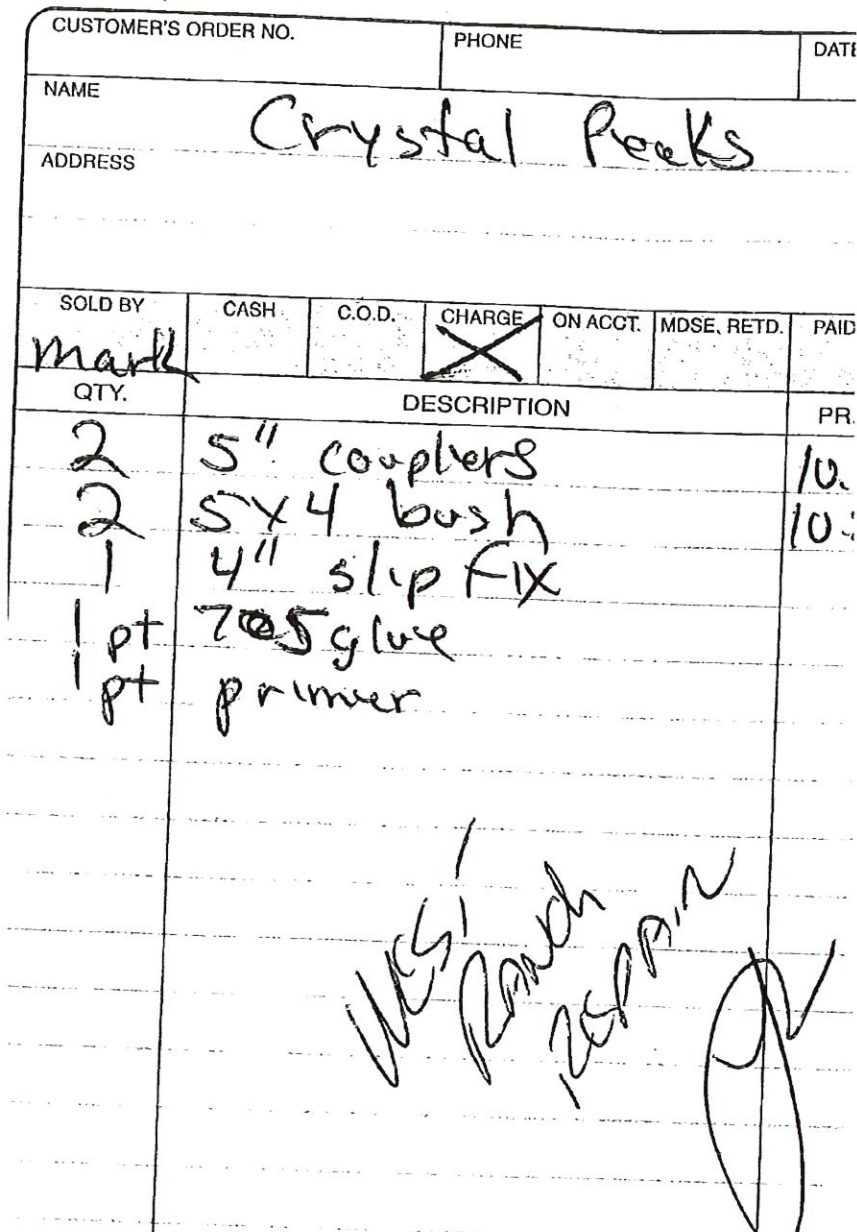 CUSTOMER'S ORDER NO. PHONE DATE
NAME Crystal Peaks
ADDRESS
SOLD BY CASH C.O.D. CHARGE ON ACCT. MDSE. RETD. PAID
Mark
QTY. DESCRIPTION PR
2 5" couplers 10.
2 5x4 bush 10.
1 4" slip FIX
1 pt 705 glue
1 pt primer
WEST
RANCH
REPAIR